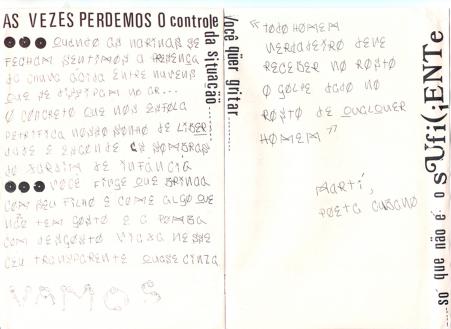 AS VEZES PERDEMOS O controle
da situação
QUANDO AS NARINAS SE
FECHAM SENTIMOS A PRESENÇA
DA CHUVA ÁCIDA ENTRE NUVENS
QUE SE DISSIPAM NO AR...
O CONCRETO QUE NOS ESFOLA
PETRIFICA NOSSO SONHO DE LIBER-
DADE E ESCONDE AS SOMBRAS
DO JARDIM DE INFÂNCIA
VOCÊ FINGE QUE BRINCA
COM SEU FILHO E COME ALGO QUE
NÃO TEM GOSTO E A POMBA
COM DESGOSTO VICIA NESSE
CEU TRANSPARENTE QUASE CINZA
VAMOS
Você qüer gritar
....só que não é: o sUfi(¡ENTe
"TODO HOMEM
VERDADEIRO DEVE
RECEBER NO ROSTO
O GOLPE DADO NO
ROSTO DE QUALQUER
HOMEM"
MARTÍ,
POETA CUBANO